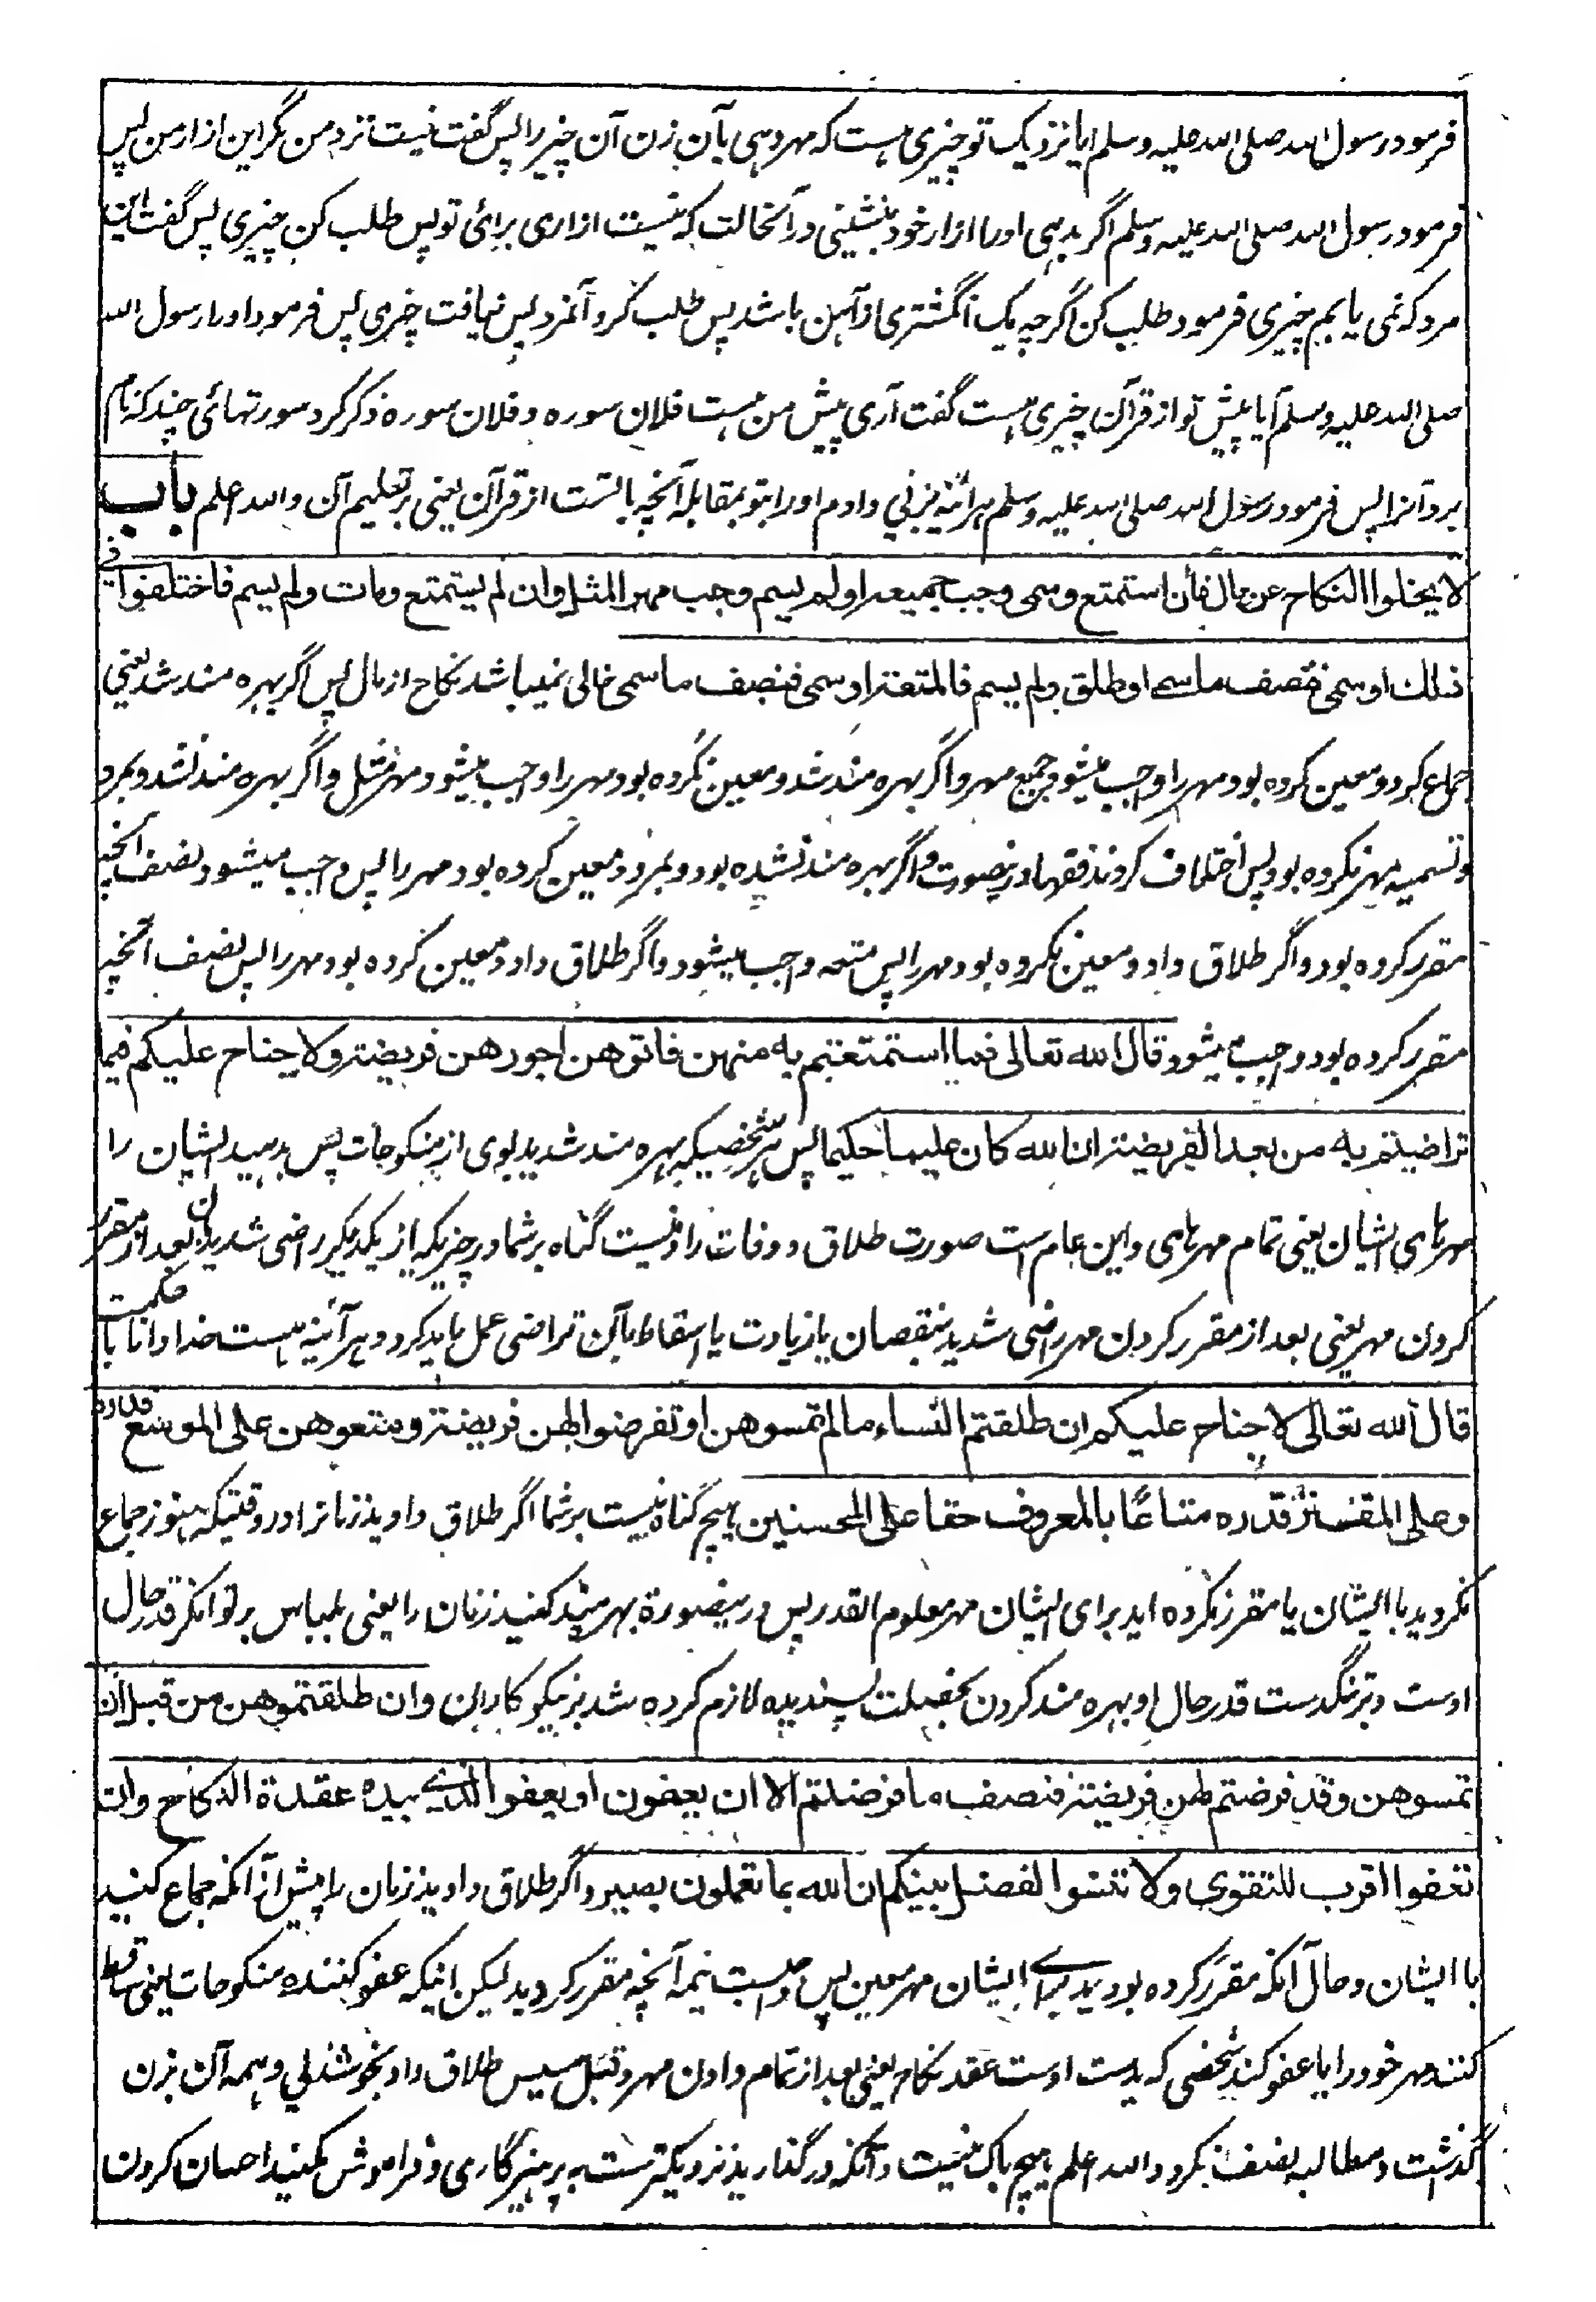 فرمود رسول الله صلی الله علیه وسلم ایا نزدیک تو چیزی هست که مهر دهی بآن زن آن چیز را پس گفت نیست نزد من مگر این ازار من پس
فرمود رسول الله صلی الله علیه وسلم اگر بدهی او را ازار خود بنشینی در آنحالت که نیست ازاری برائی تو پس طلب کن چیزی پس گفت این
مرد که نمی یابم چیزی فرمود طلب کن اگرچه یک انگشتری از آهن باشد پس طلب کرد آنمرد پس نیافت چیزی پس فرمود او را رسول الله
صلی الله علیه وسلم آیا پیش تو از قرآن چیزی هست گفت آری پیش من هست فلان سوره و فلان سوره ذکر کرد سورتهائی چند که نام
برد آنرا پس فرمود رسول الله صلی الله علیه وسلم هرآئنه بزنی دادم او را بتو بمقابله آنچه با تست از قرآن یعنی بر تعلیم آن والله اعلم باب
لا یخلوا النکاح عن مال فأن استمتع وسمی وجب جمیعه او لم یسم وجب مهر المثل وان لم یستمتع ومات ولم یسم فاختلفوا فی
ذلك او سمی فنصف ما سمے او طلق ولم یسم فالمتعة او سمی فنصف ما سمی خالی نمیباشد نکاح از مال پس اگر بهره مند شد یعنی
جماع کرد و معین کرده بود مهر را واجب میشود جمیع مهر و اگر بهره مند شد و معین نکرده بود مهر را واجب میشود مهر مثل و اگر بهره مند نشد و بمرد
و تسمیه مهر نکرده بود پس اختلاف کردند فقها درینصورت و اگر بهره مند نشده بود و بمرد و معین کرده بود مهر را پس واجب میشود نصف آنچه
مقرر کرده بود و اگر طلاق داد و معین نکرده بود مهر را پس متعه واجب میشود و اگر طلاق داد و معین کرده بود مهر را پس نصف آنچه
مقرر کرده بود واجب میشود قال الله تعالی فما استمتعتم به منهن فاتوهن اجورهن فریضة ولا جناح علیکم فیما
تراضیتم به من بعد الفریضة ان الله کان علیما حکیما پس هر شخصیکه بهره مند شدید بوی از منکوحات پس بدهید ایشان را
مهرهای ایشان یعنی تمام مهرهای واین عام است صورت طلاق و وفات را و نیست گناه بر شما در چیزیکه از یکدیگر راضی شدید بآن بعد از مقرر
کردن مهر یعنی بعد از مقرر کردن مهر راضی شدید بنقصان یا زیادت یا اسقاط بآن تراضی عمل باید کرد و هر آئینه هست خدا دانا با حکمت
قال الله تعالی لا جناح علیکم ان طلقتم النساء ما لم تمسوهن او تفرضوا لهن فریضة ومتعوهن علی الموسع قدره
وعلی المقتر قدره متاعًا بالمعروف حقا علی المحسنین هیچ گناه نیست بر شما اگر طلاق دادید زنانرا در وقتیکه هنوز جماع
نکردید با ایشان یا مقرر نکرده اید برای ایشان مهر معلوم القدر پس درینصورة بهره مند کنید زنان را یعنی بلباس بر توانگر قدر حال
اوست و بر تنگدست قدر حال او بهره مند کردن بخصلت پسندیده لازم کرده شد بر نیکوکاران وان طلقتموهن من قبل ان
تمسوهن وقد فرضتم لهن فریضة فنصف ما فرضتم الا ان یعفون او یعفوا الذے بیده عقدة النکاح وان
تعفوا اقرب للتقوی ولا تنسوا الفضل بینکم ان الله بما تعملون بصیر و اگر طلاق دادید زنان را پیش از آنکه جماع کنید
با ایشان و حال آنکه مقرر کرده بودید براے ایشان مهر معین پس واجب است نیمه آنچه مقرر کردید لیکن اینکه عفو کننده منکوحات یعنی ساقط
کنند مهر خود را یا عفو کند شخصی که بدست اوست عقد نکاح یعنی بعد از تمام دادن مهر و قبل مسیس طلاق داد بخوشدلی و همه آن بزن
گذاشت و مطالبه نصف نکرد والله اعلم هیچ باک نیست و آنکه در گذارید نزدیکتر ست به پرهیزگاری و فراموش مکنید احسان کردن